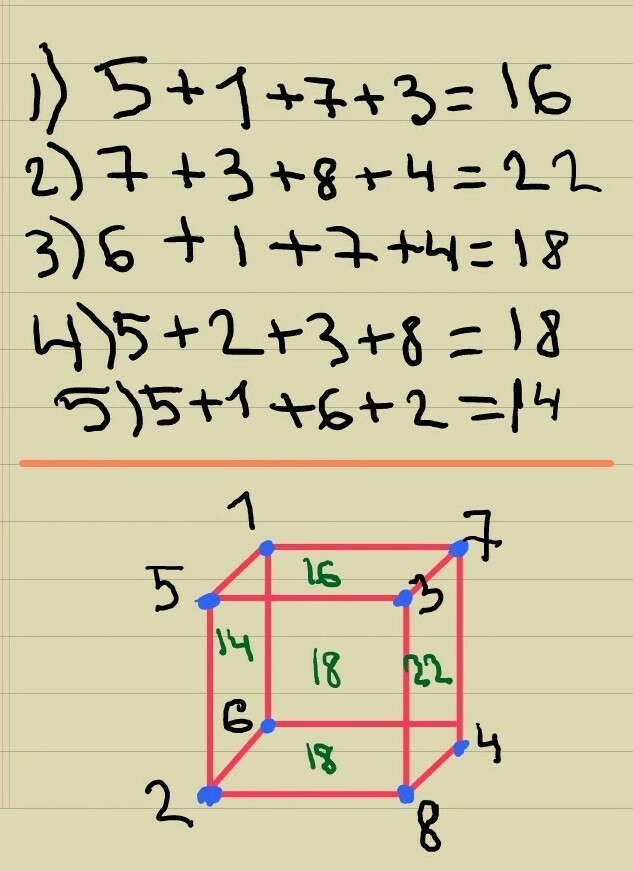 1) 5+1+7+3=16
2) 7+3+8+4=22
3) 6+1+7+4=18
4) 5+2+3+8=18
5) 5+1+6+2=14
1 7
16
5 3
14 18 22
6 4
18
2 8